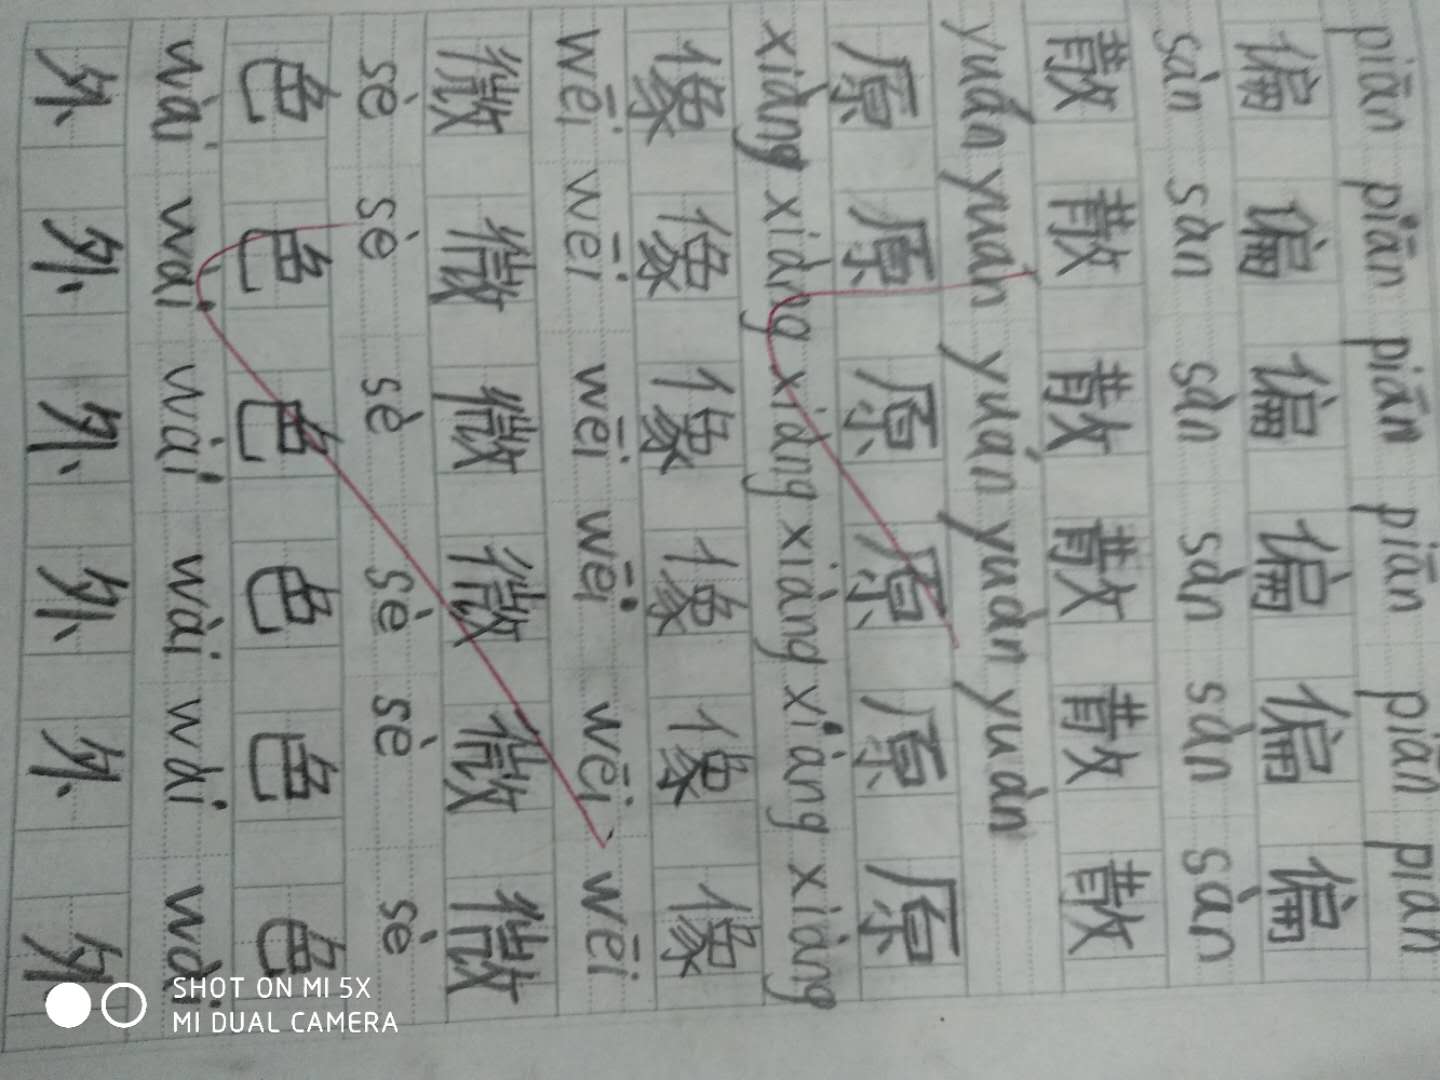 piān piān piān piān piān piān
偏 偏 偏 偏 偏 偏
sàn sàn sàn sàn sàn sàn
散 散 散 散 散 散
yuán yuán yuán yuán yuán
原 原 原 原 原 原
xiàng xiàng xiàng xiàng xiàng xiàng
像 像 像 像 像 像
wēi wēi wēi wēi wēi wēi
微 微 微 微 微 微
sè sè sè sè sè sè
色 色 色 色 色 色
wài wài wài wài wài wài
外 外 外 外 外 外
SHOT ON MI 5X
MI DUAL CAMERA